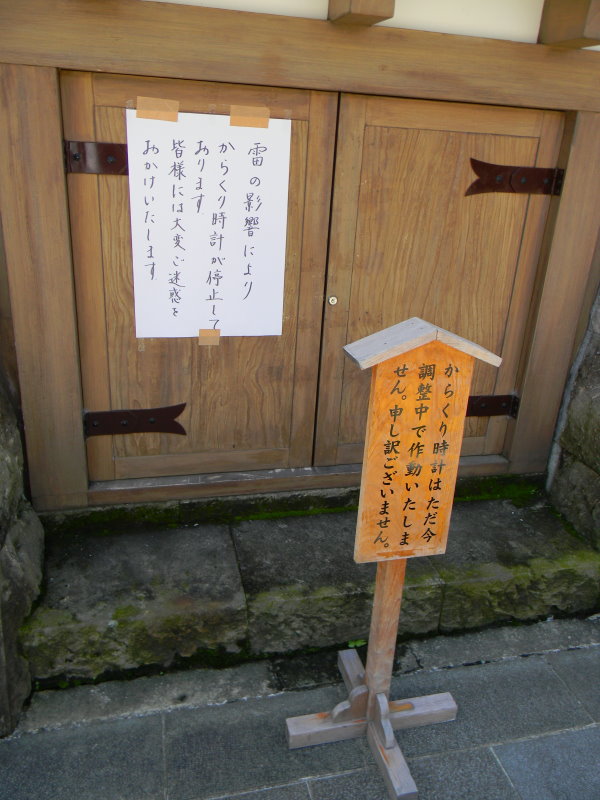 雷の影響により
からくり時計が停止して
おります
皆様には大変ご迷惑を
おかけいたします
からくり時計はただ今
調整中で作動いたしま
せん。申し訳ございません。